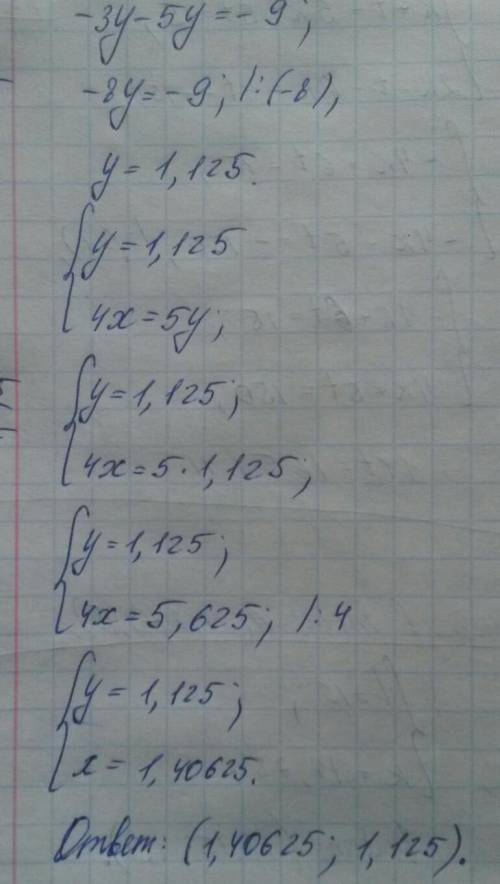 -3y-5y=-9;
-8y=-9; /:(-8),
y=1,125.
{y=1,125
4x=5y;
{y=1,125;
4x=5·1,125;
{y=1,125;
4x=5,625; /:4
{y=1,125;
x=1,40625.
Ответ: (1,40625; 1,125).